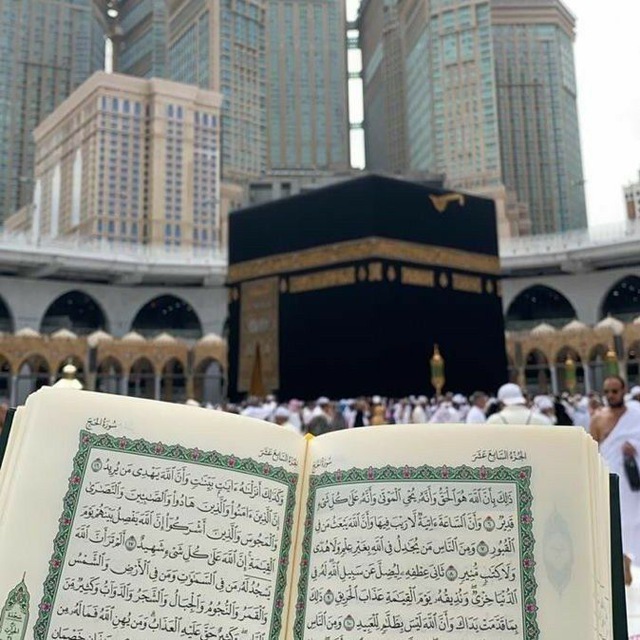 الجزء السابع عشر
سورة الحج
ذَٰلِكَ بِأَنَّ ٱللَّهَ هُوَ ٱلْحَقُّ وَأَنَّهُۥ يُحْىِ ٱلْمَوْتَىٰ وَأَنَّهُۥ عَلَىٰ كُلِّ شَىْءٍ
قَدِيرٌ ٦ وَأَنَّ ٱلسَّاعَةَ ءَاتِيَةٌ لَّا رَيْبَ فِيهَا وَأَنَّ ٱللَّهَ يَبْعَثُ مَن فِى
ٱلْقُبُورِ ٧ وَمِنَ ٱلنَّاسِ مَن يُجَٰدِلُ فِى ٱللَّهِ بِغَيْرِ عِلْمٍ وَلَا هُدًى
وَلَا كِتَٰبٍ مُّنِيرٍ ٨ ثَانِىَ عِطْفِهِۦ لِيُضِلَّ عَن سَبِيلِ ٱللَّهِ لَهُۥ فِى
ٱلدُّنْيَا خِزْىٌ وَنُذِيقُهُۥ يَوْمَ ٱلْقِيَٰمَةِ عَذَابَ ٱلْحَرِيقِ ٩ ذَٰلِكَ
بِمَا قَدَّمَتْ يَدَاكَ وَأَنَّ ٱللَّهَ لَيْسَ بِظَلَّٰمٍ لِّلْعَبِيدِ ١٠ وَمِنَ ٱلنَّاسِ
الجزء السابع عشر
سورة الحج
وَكَذَٰلِكَ أَنزَلْنَٰهُ ءَايَٰتٍۭ بَيِّنَٰتٍ وَأَنَّ ٱللَّهَ يَهْدِى مَن يُرِيدُ ١٦
إِنَّ ٱلَّذِينَ ءَامَنُوا۟ وَٱلَّذِينَ هَادُوا۟ وَٱلصَّٰبِـِٔينَ وَٱلنَّصَٰرَىٰ
وَٱلْمَجُوسَ وَٱلَّذِينَ أَشْرَكُوٓا۟ إِنَّ ٱللَّهَ يَفْصِلُ بَيْنَهُمْ يَوْمَ
ٱلْقِيَٰمَةِ إِنَّ ٱللَّهَ عَلَىٰ كُلِّ شَىْءٍ شَهِيدٌ ١٧ أَلَمْ تَرَ أَنَّ ٱللَّهَ
يَسْجُدُ لَهُۥ مَن فِى ٱلسَّمَٰوَٰتِ وَمَن فِى ٱلْأَرْضِ وَٱلشَّمْسُ
وَٱلْقَمَرُ وَٱلنُّجُومُ وَٱلْجِبَالُ وَٱلشَّجَرُ وَٱلدَّوَآبُّ وَكَثِيرٌ مِّنَ
وَكَثِيرٌ حَقَّ عَلَيْهِ ٱلْعَذَابُ وَمَن يُهِنِ ٱللَّهُ فَمَا لَهُۥ مِن
خَصْمَانِ